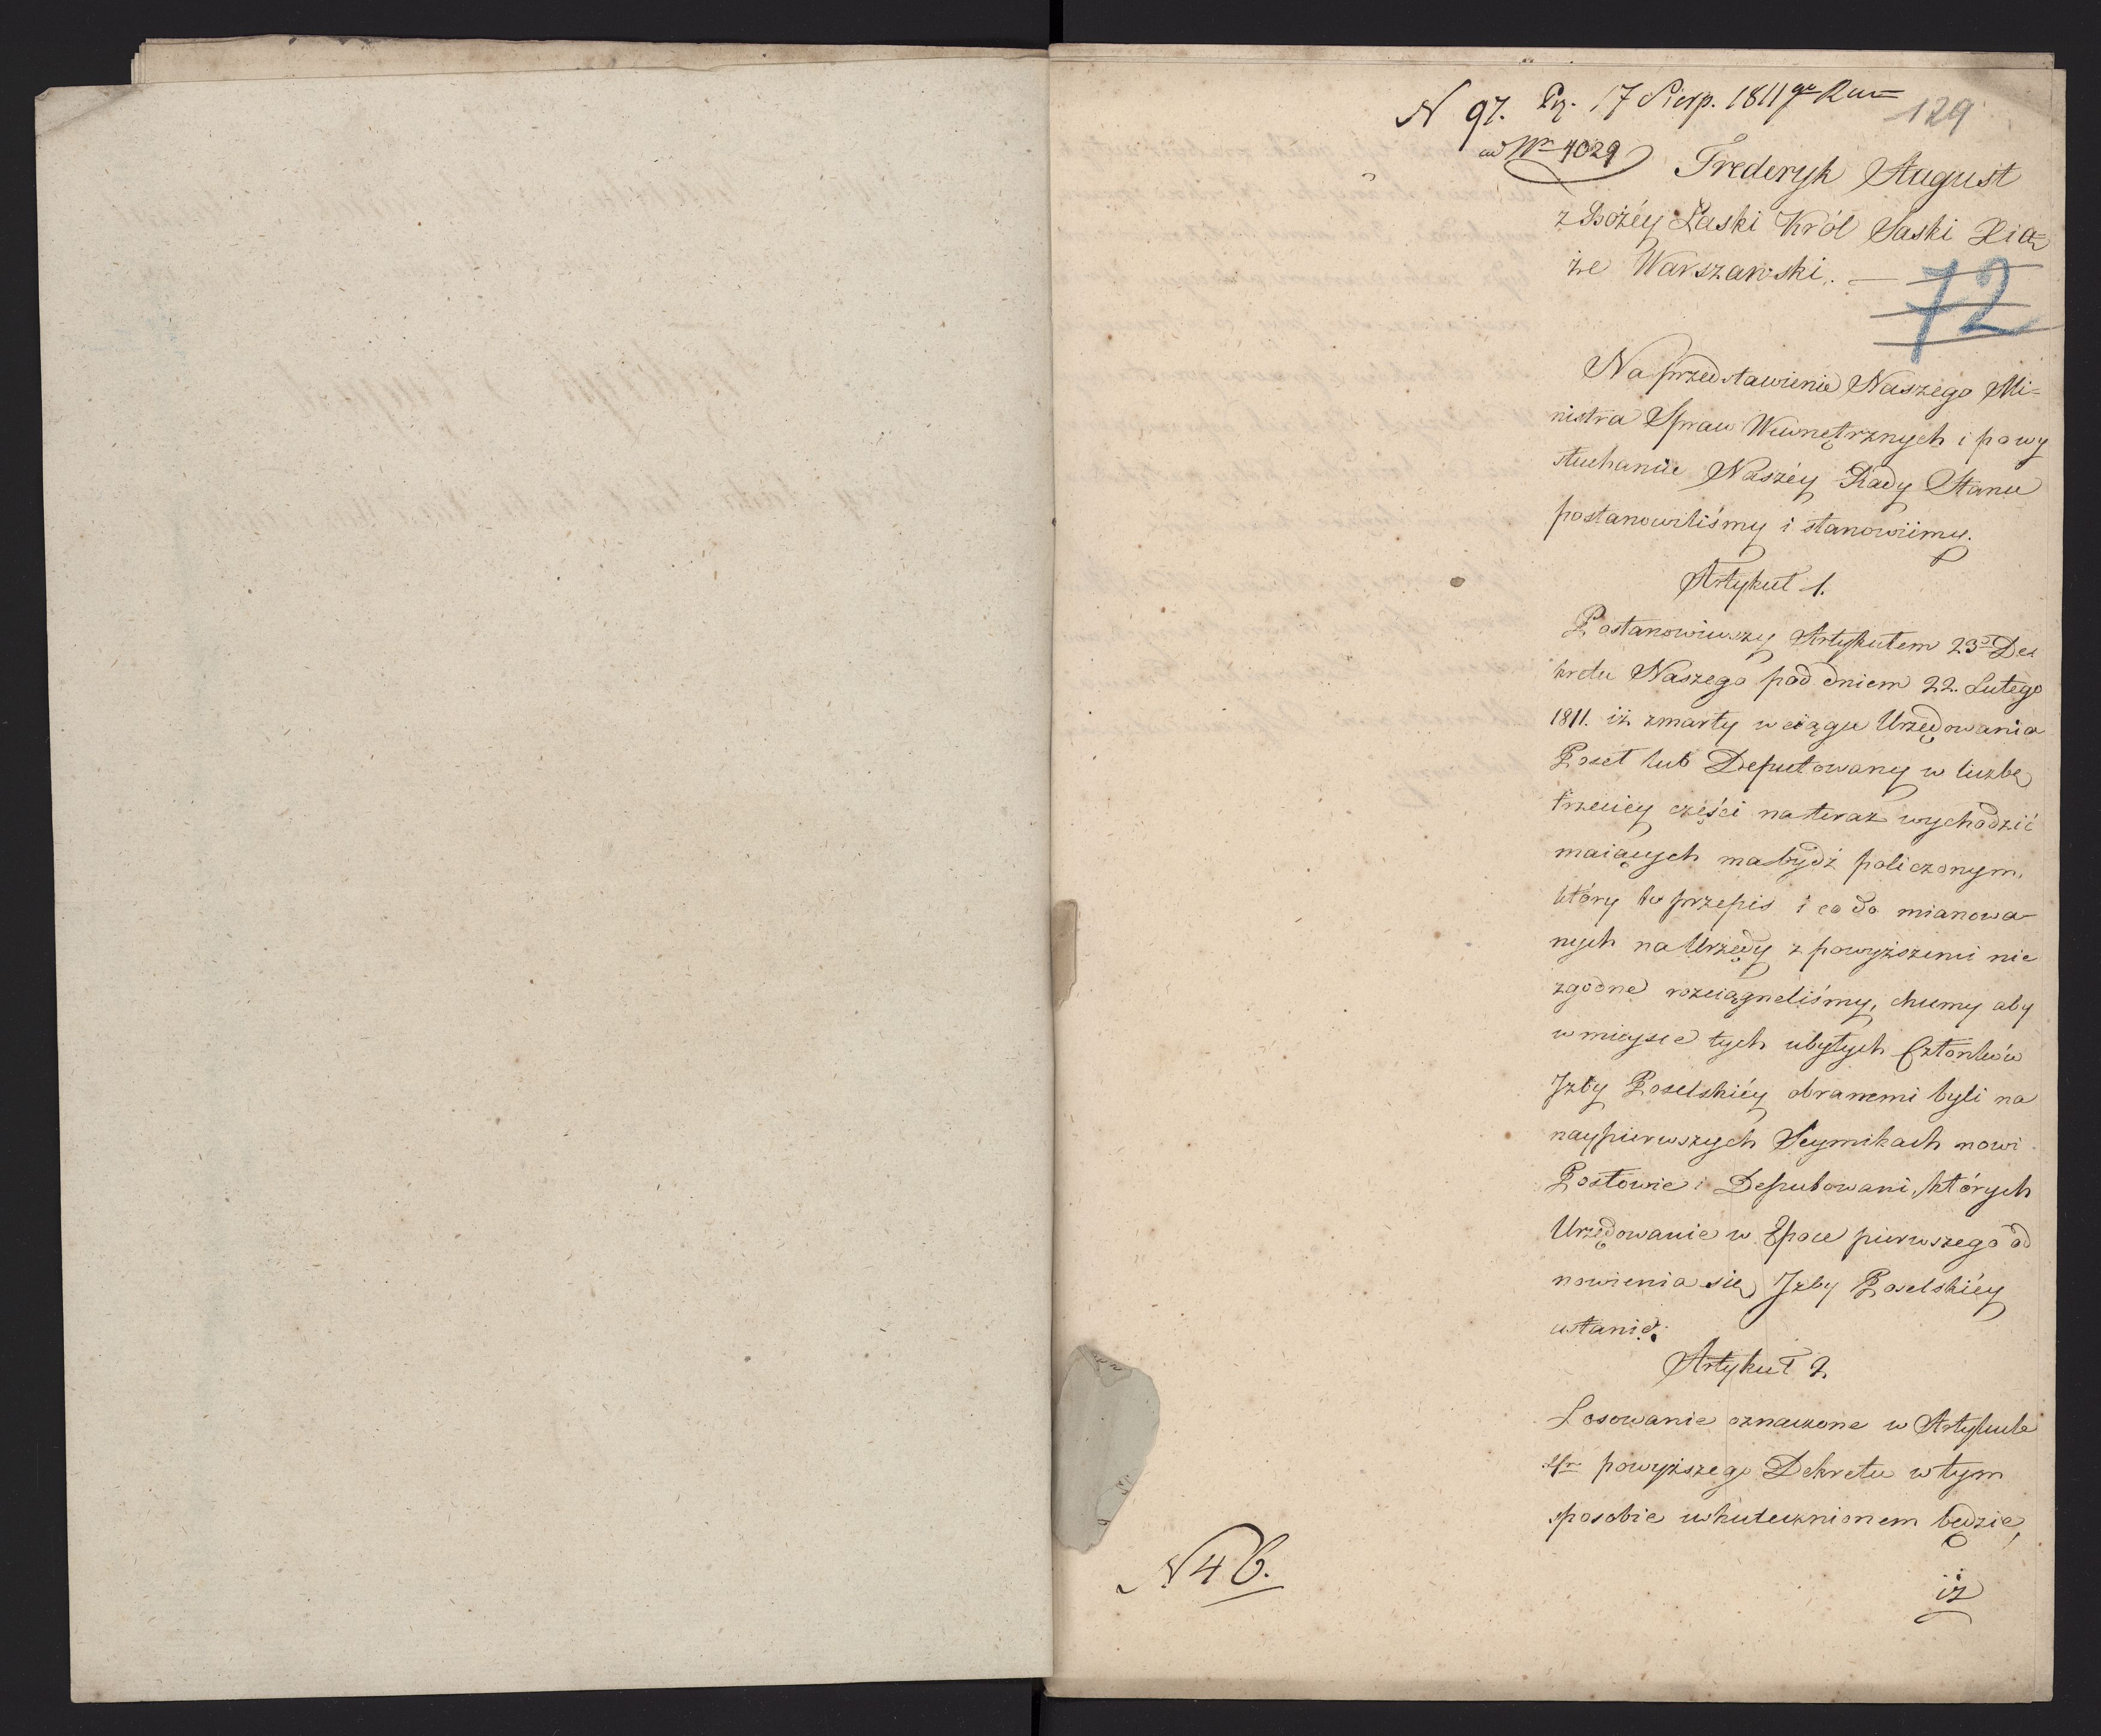 N 97. Pr. 17 Sierp. 1811 go Rou
129
ad Nr 4029
Frederyk August
z Bożéy Łaski Król Saski Xią=
że Warszawski. —
72
Na przedstawienie Naszego Mi=
nistra Spraw Wewnętrznych i po wy
słuchaniu Naszéy Rady Stanu
postanowiliśmy i stanowiimy.
Artykuł 1.
Postanowiwszy Artykułem 23m De
kretu Naszego pod dniem 22. Lutego
1811. iż zmarły w ciągu Urzędowania
Poseł lub Deputowany w liczbę
trzeciey części na teraz wychodzić
maiących ma bydź policzonym,
który to przepis i co do mianowa-
nych na Urzędy z powyższemi nie
zgodne rozciągneliśmy, chcemy aby
w mieysce tych ubyłych Członków
Izby Poselskiéy obranemi byli na
naypierwszych Seymikach nowi
Posłowie i Deputowani, których
Urzędowanie w Epoce pierwszego od
nowienia się Izby Poselskiéy
ustanie.
Artykuł 2.
Losowanie oznaczone w Artykule
powyższego Dekretu w tym
sposobie uskutecznionem będzie,
iż
N 46.